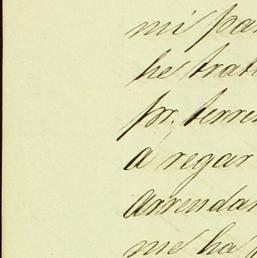 mi pa
he trat
pr. terre
á regar
Arrendar
me ha